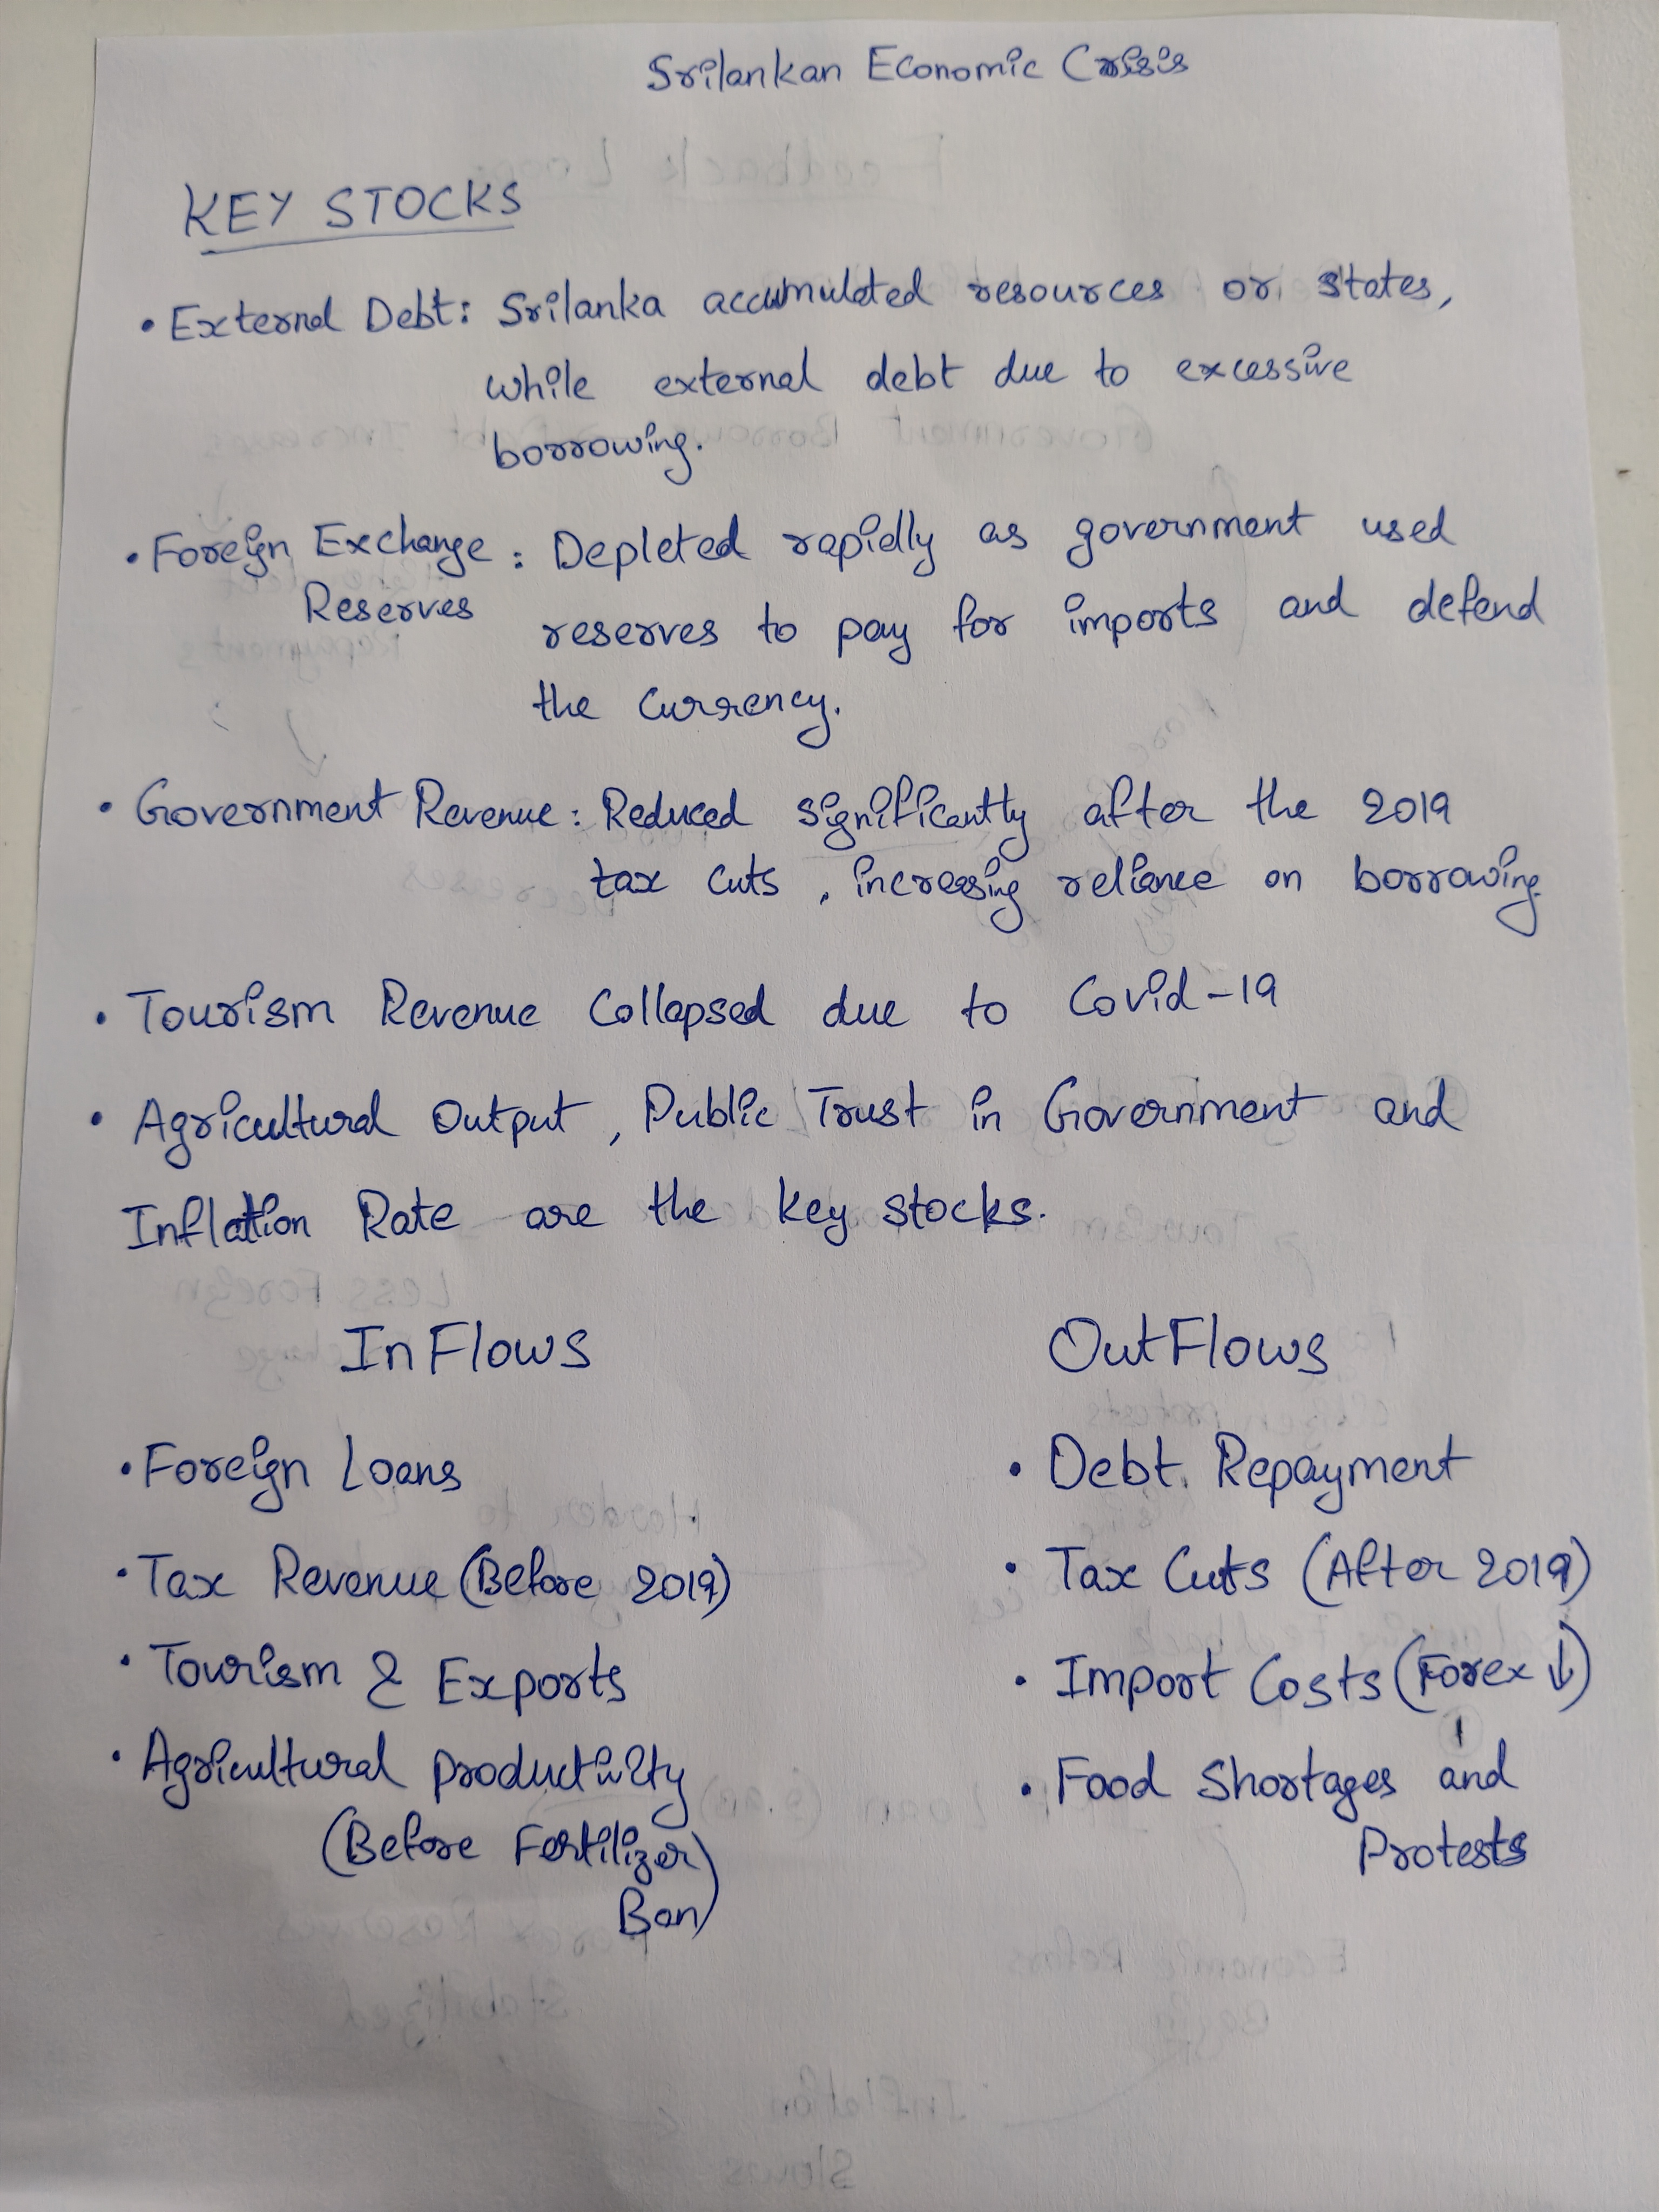 Srilankan Economic Crisis
KEY STOCKS
• External Debt: Srilanka accumulated resources or states,
while external debt due to excessive
borrowing.
• Foreign Exchange : Depleted rapidly as government used
Reserves reserves to pay for imports and defend
the Currency.
• Government Revenue : Reduced significantly after the 2019
tax cuts , increasing reliance on borrowing.
• Tourism Revenue Collapsed due to Covid-19
• Agricultural Output , Public Trust in Government and
Inflation Rate are the key stocks.
InFlows
• Foreign Loans
• Tax Revenue (Before 2019)
• Tourism & Exports
• Agricultural productivity
(Before Fertilizer
Ban)
OutFlows
• Debt. Repayment
• Tax Cuts (After 2019)
• Import Costs (Forex ↓)
• Food Shortages and
Protests